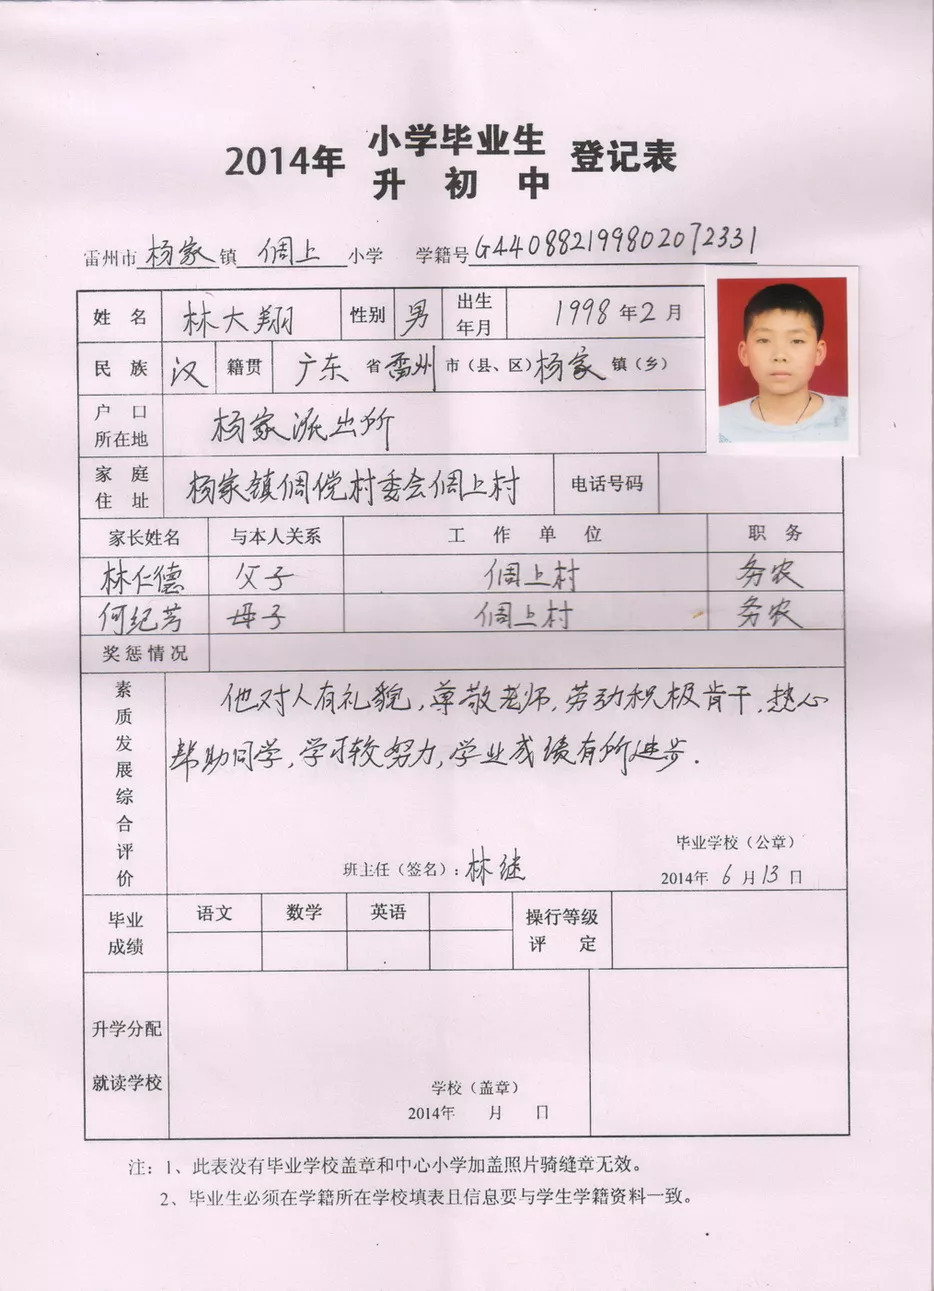 2014年 小学毕业生 登记表
升初中
雷州市杨家镇倜上小学 学籍号G440882199802072331
姓名 林大翔 性别 男 出生年月 1998年2月
民族 汉 籍贯 广东省雷州市(县、区)杨家镇(乡)
户口所在地 杨家派出所
家庭住址 杨家镇倜傥村委会倜上村 电话号码
家长姓名 与本人关系 工作单位 职务
林仁德 父子 倜上村 务农
何纪芳 母子 倜上村 务农
奖惩情况
素质发展综合评价
他对人有礼貌,尊敬老师,劳动积极肯干,热心
帮助同学,学习较努力,学业成绩有所进步.
毕业学校(公章)
班主任(签名):林继 2014年6月13日
毕业成绩 语文 数学 英语 操行等级评定
升学分配
就读学校
学校(盖章)
2014年 月 日
注:1、此表没有毕业学校盖章和中心小学加盖照片骑缝章无效。
2、毕业生必须在学籍所在学校填表且信息要与学生学籍资料一致。